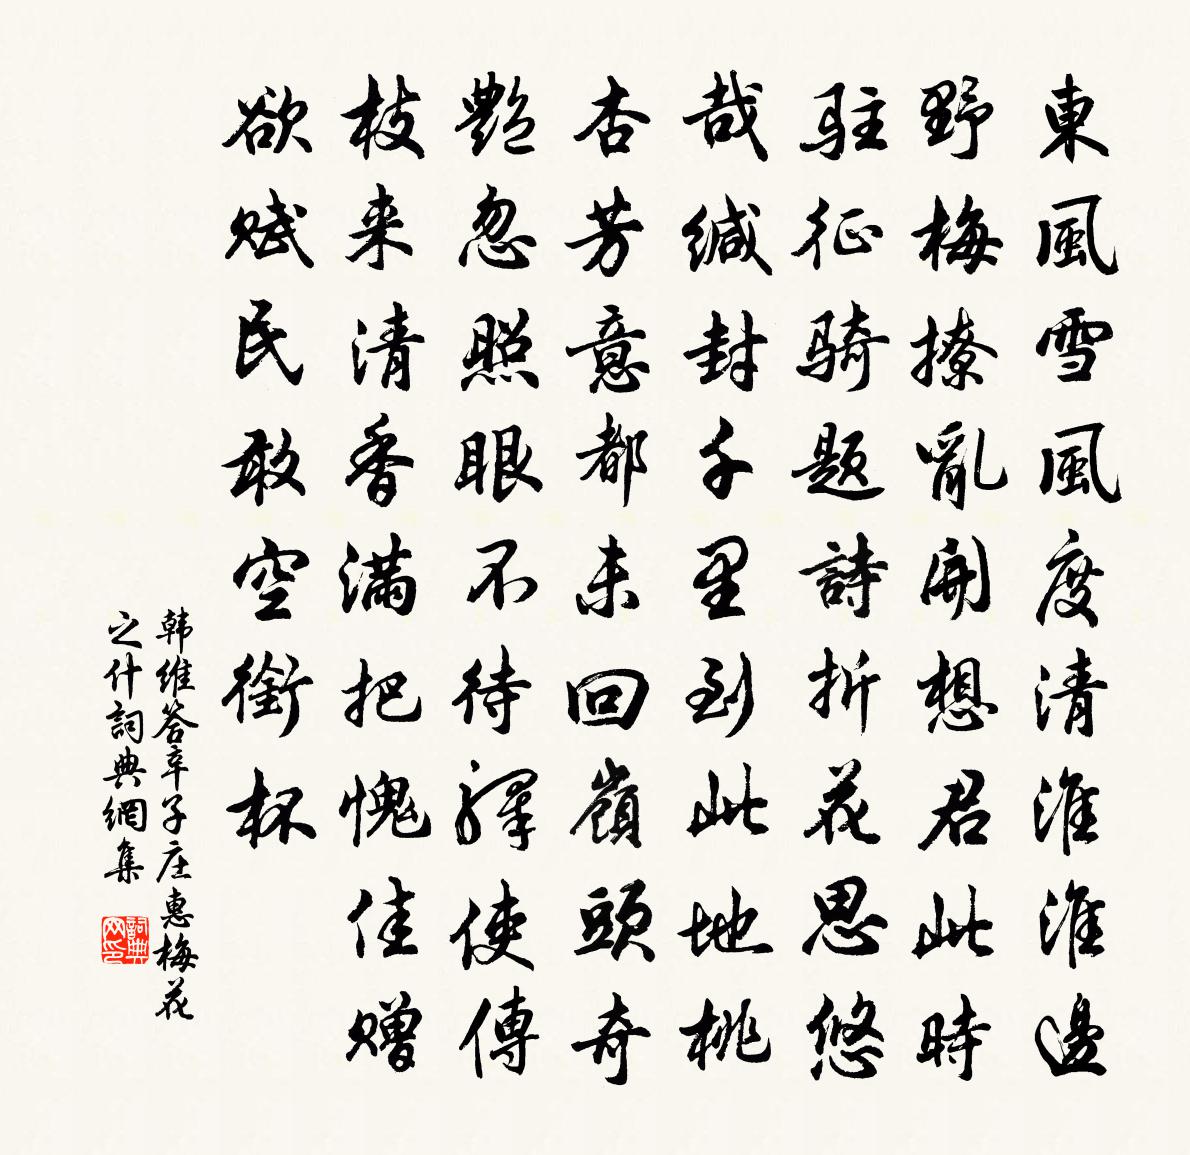 東風雪風度清淮淮邊
野梅撩亂開想君此時
駐征騎題詩折花思悠
哉緘封千里到此地桃
杏芳意都未回嶺頭奇
艷忽照眼不待驛使傳
枝来清香滿把愧佳贈
欲賦民敢空銜杯
韩維答辛子庄惠梅花
之什詞典網集
詞典
网印